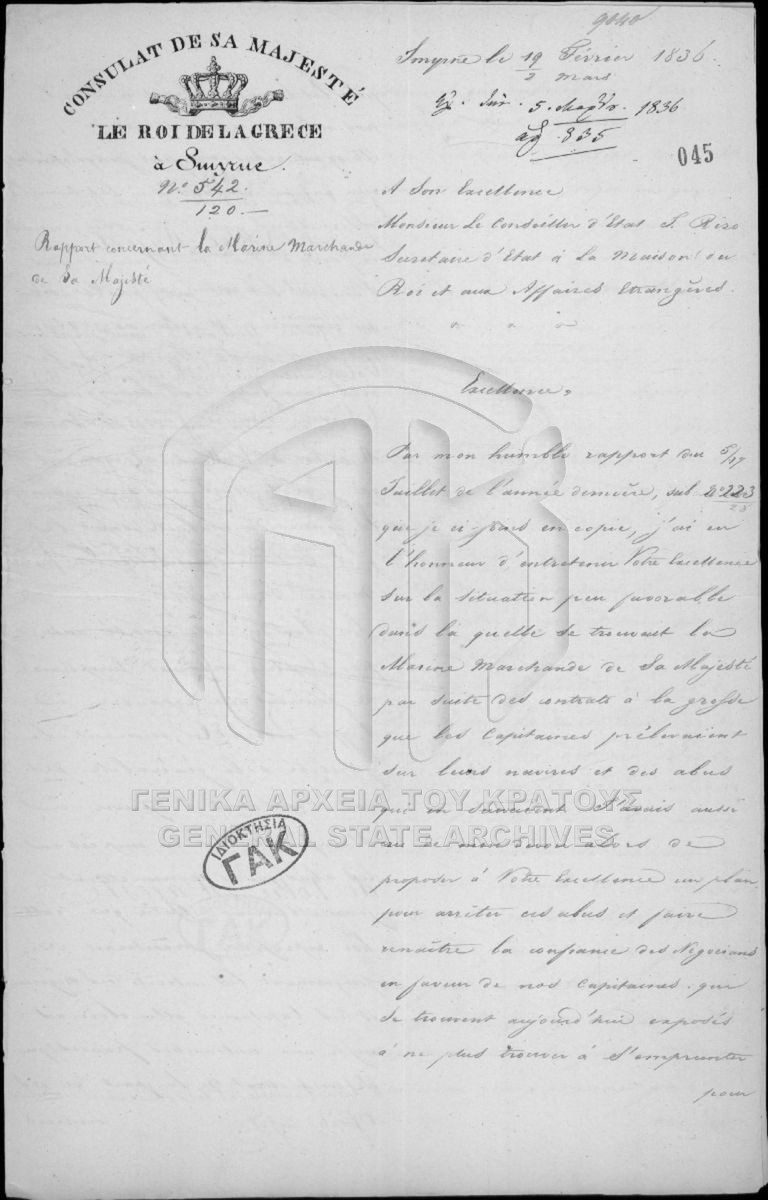 9040
CONSULAT DE SA MAJESTÉ
LE ROI DE LA GRECE
à Smyrne.
No. 542.
120.
Rapport concernant la Marine Marchande
de Sa Majesté
Smyrne le 19 Février 1836.
2 Mars
5. 1836
835
045
A Son Excellence
Monsieur Le Conseiller d'Etat J. Rizo
Secretaire d'Etat à La Maison du
Roi et aux Affaires Etrangères.
Excellence,
Par mon humble rapport du 5/17
Juillet de l'année dernière, sub No 223
23
que je ci-joins en copie, j'ai eu
l'honneur d'entretenir Votre Excellence
sur la situation peu favorable
dans la quelle se trouvait la
Marine Marchande de Sa Majesté
par suite des contrats à la grosse
que les Capitaines prélevaient
sur leurs navires et des abus
que en J'avais aussi
de mon devoir alors de
proposer à Votre Excellence un plan
pour arrêter ces abus et faire
renaître la confiance des Negocians
en faveur de nos Capitaines que
se trouvent aujourd'hui exposés
à ne plus trouver à s'emprunter
pour
ΓΕΝΙΚΑ ΑΡΧΕΙΑ ΤΟΥ ΚΡΑΤΟΥΣ
GENERAL STATE ARCHIVES
ΙΔΙΟΚΤΗΣΙΑ
ΓΑΚ